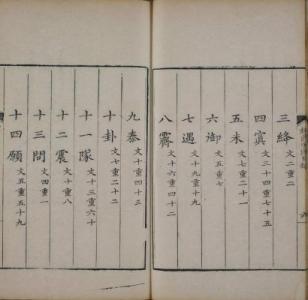 三絳 文二重二
四寘 文十四重七十五
五未 文七重二十一
六御 文五重七
七遇 文十九重十九
八霽 文十六重四十二
九泰 文十重四十三
十卦 文七重二十二
十一隊 文十三重六十
十二震 文十重八
十三問 文四重一
十四願 文五重五十九